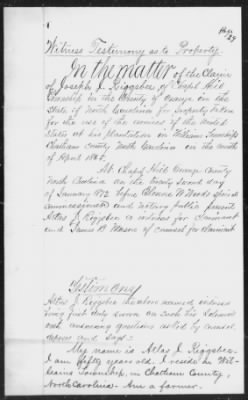 Witness Testimony as to Property
In the matter of the Claim
of Joseph J. Riggsbee, of Chapel Hill
Township in the County of Orange in the
State of North Carolina for
for the use of the armies of the United
States at his plantation in Williams Township
Chatham County North Carolina on the
of April 1865.
At Chapel Hill Orange County
North Carolina on the twenty second day
of January 1872 before
Commissioner and notary public present
Atlas J. Riggsbee a witness for Claimant
and James B. Mason of counsel for Claimant
Testimony
Atlas J. Riggsbee the above named witness
being first duly sworn on such his solemn
oath answering questions asked by counsel
deposes and says:
My name is Atlas J. Riggsbee.
I am fifty years old. I reside in Wil-
liams Township, in Chatham County,
North Carolina. Am a farmer.